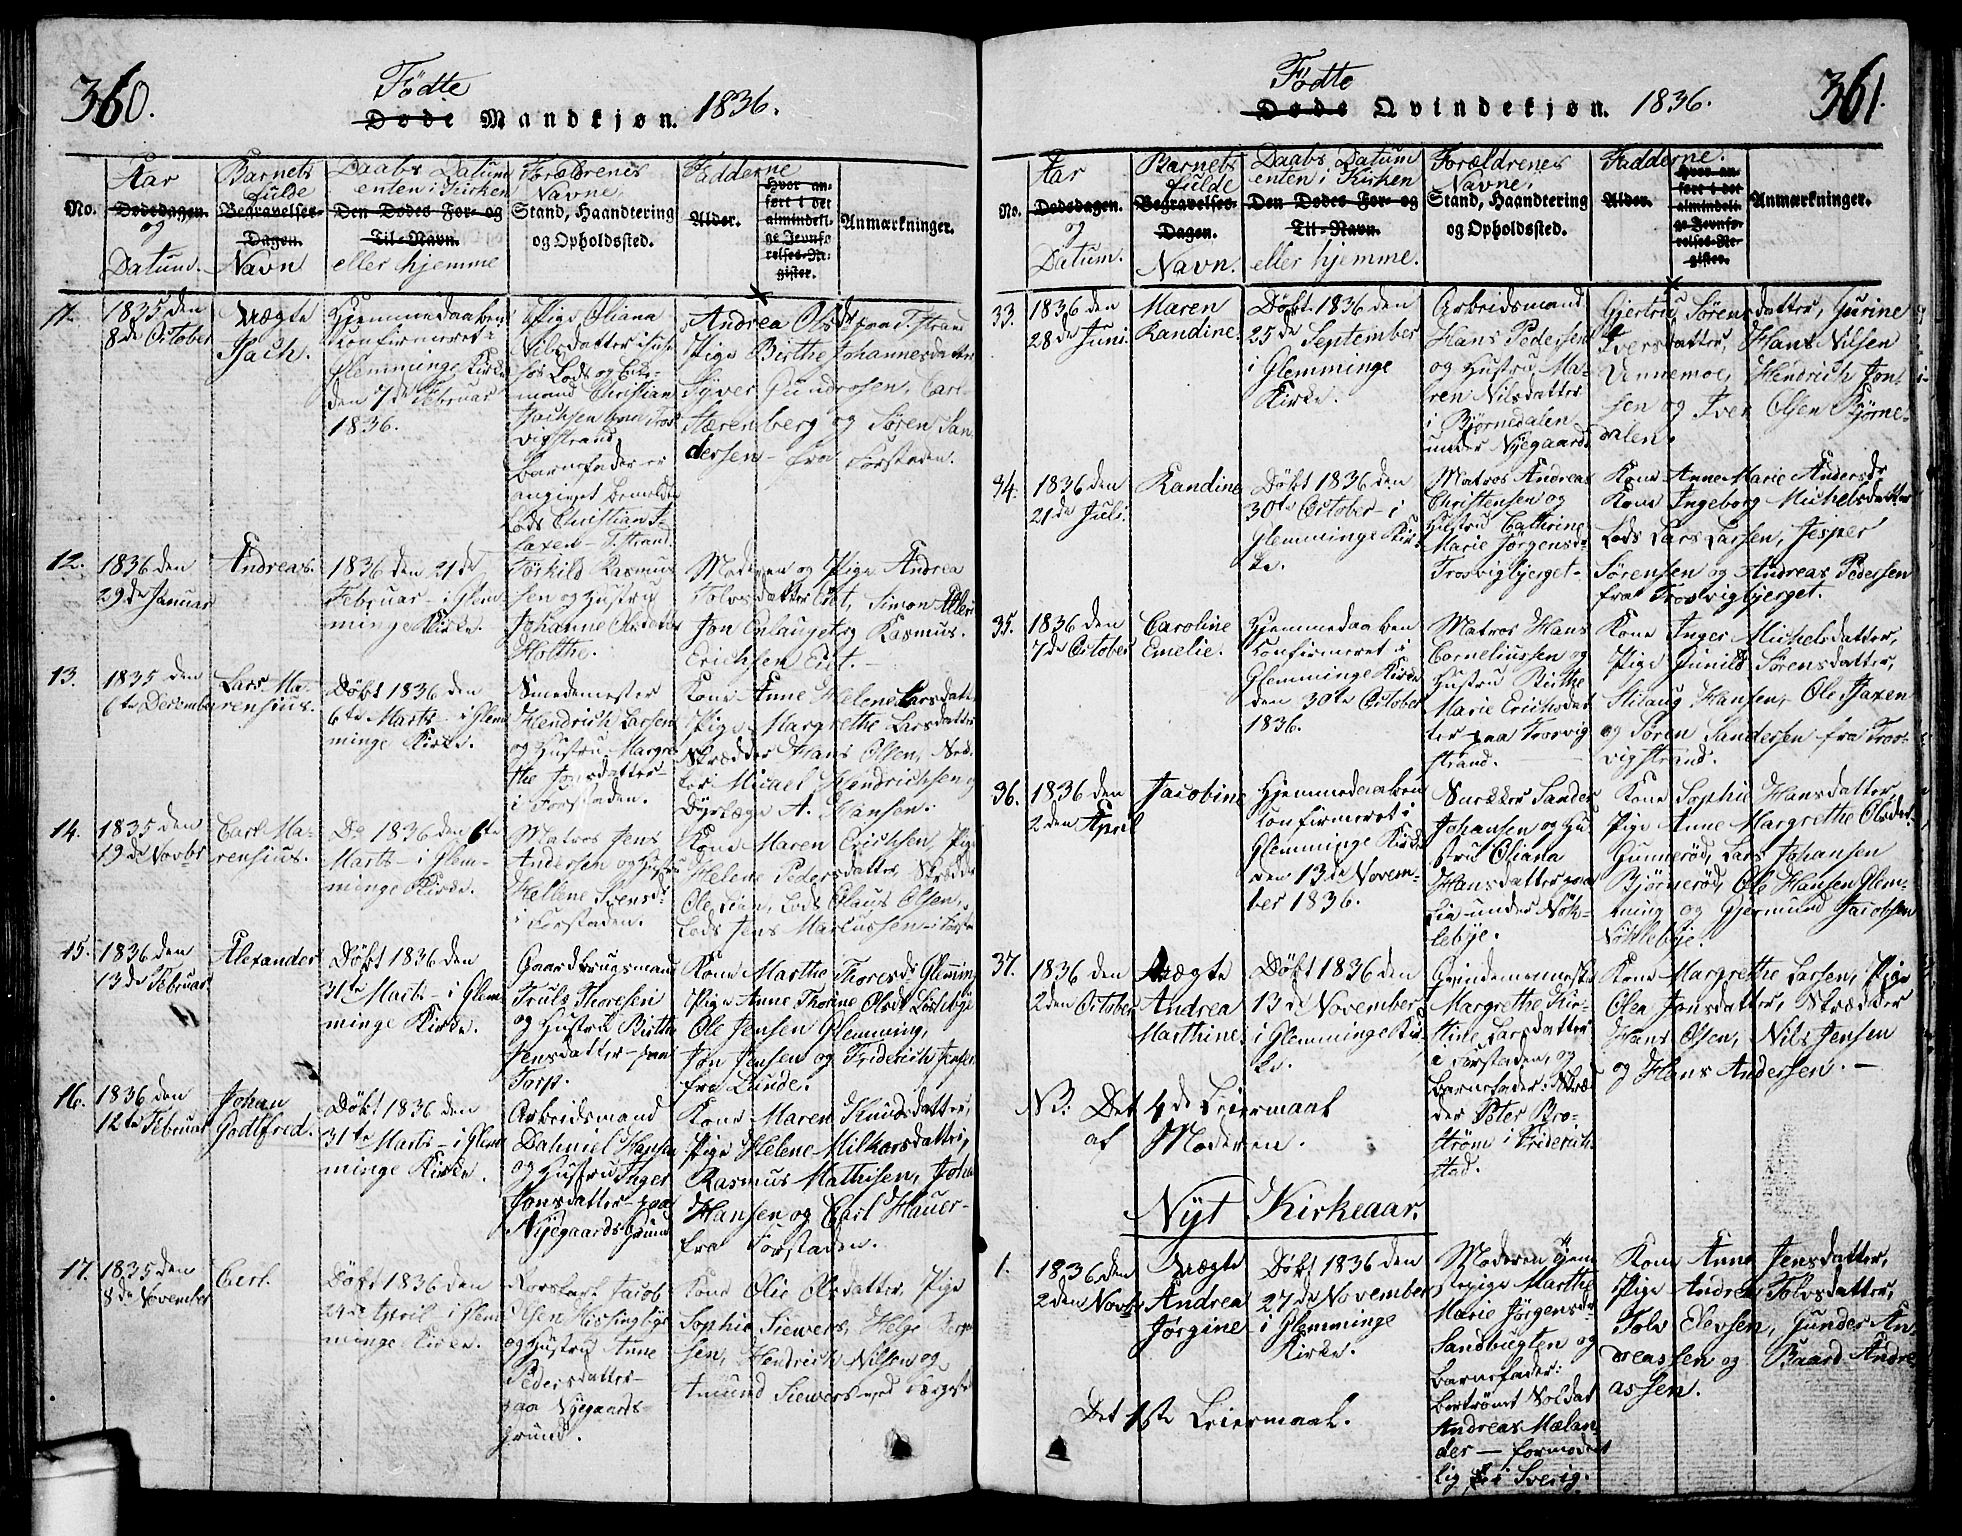 360.
Fødte
Døde Mandkjøn. 1836.
No.
Aar
Dødsdagen.
og
Datum.
Barnets
fulde
Begravelses-
Dagen.
Navn
Daabs Datum
enten i Kirken
Den Dødes For- og
Til-Navn.
eller hjemme
Forældrenes
Navne,
Stand, Haandtering
og Opholdssted.
Fadderne
Alder.
Hvor an-
ført i det
almindeli-
ge Jevnfø-
relses-Re-
gister.
Anmærkninger.
11.
1835 den
8de October
Uægte
Isach.
Hjemmedaaben
confirmeret i
Glemminge Kirke
den 7de Februar
1836.
Pige Oliana
Nilsdatter
Christian
Barnefader er
angivet
Lods Christian
Andrea Olsd
Pige Birthe Johannesdatter
Syver Gundrosen, Carl
og Søren San-
dersen fra Forstaden.
12.
1836 den
29de Januar
Andreas.
1836 den 21de
Februar i Glem-
minge Kirke.
Torkild Rasmus-
sen og Hustru
Johanne
Holthe.
Moderen og Pige Andrea
Tolvsdatter Eet, Simon
Rasmus
Erichsen Eet.
13.
1835 den
6te December
Lars Ma-
rensius.
Døbt 1836 den
6te Marts i Glem-
minge Kirke.
Smedemester
Hendrich Larsen
og Hustru Margre-
the Jonsdatter
i Forstaden.
Kone Anne Helene Larsdatter
Pige Margrethe Larsdatter
Skrædder Hans Olsen,
Micael Hendrichsen og
Dyrlæge A. Hansen.
14.
1835 den
19de Novbr
Carl Ma-
rensius.
Do 1836 den 6te
Marts i Glem-
minge Kirke.
Matros Jens
Andersen og Hustru
Hellene Svensd
i Forstaden.
Kone Maren Erichsen, Pige
Helene Pedersdatter, Skrædder
Ole Lian, Lods Olaus Olsen,
Lods Jens Marcussen
15.
1836 den
13de Februar
Alexander
Døbt 1836 den
31te Marts i Glem-
minge Kirke.
Gaardbrugsmand
Truls Thoresen
og Hustru Birthe
Jensdatter paa
Torp.
Kone Marthe Thoresd Glemming
Pige Anne Thorine Olsdt
Ole Jensen Glemming,
Jon Jensen og Friderich Jensen
fra Lunde.
16.
1836 den
12te Februar
Johan
Godtfred.
Døbt 1836 den
31te Marts i Glem-
minge Kirke.
Arbeidsmand
Dahniel Hansen
og Hustru Inger
Jonsdatter paa
Nyegaards Grund
Kone Maren Knudsdatter,
Pige Helene Milkarsdatter,
Rasmus Mathisen, Johan
Hansen og Carl Hauer
fra Forstaden.
17.
1835 den
8de November
Carl.
Døbt 1836 den
April i Glem-
minge Kirke.
Jacob
Olsen
og Hustru Anne
Pedersdatter
paa Nyegaards-
grund.
Kone Olie Olsdatter, Pige
Sophie Siewers, Helge
sen, Hendrich Nilsen og
Amund Siewers
361.
Fødte
Døde Qvindekjøn. 1836.
No.
Aar
Dødsdagen.
og
Datum.
Barnets
fulde
Begravelses-
Dagen.
Navn.
Daabs Datum
enten i Kirken
Den Dødes For- og
Til-Navn.
eller hjemme.
Forældrenes
Navne,
Stand, Haandtering
og Opholdssted.
Fadderne.
Alder.
Hvor an-
ført i det
almindeli-
ge Jevnfø-
relses-Re-
gister.
Anmærkninger.
33.
1836 den
28de Juni
Maren
Randine.
Døbt 1836 den
25de September
i Glemminge
Kirke.
Arbeidsmand
Hans Pedersen
og Hustru Ma-
ren Nilsdatter
i Bjørnedalen
under Nyegaard.
Gjertru Sørensdatter, Gurine
Iversdatter, Hans Nilsen
Unnemoe, Hendrich Jon-
sen og Iver Olsen Bjørne-
dalen.
34.
1836 den
21de Juli.
Randine
Døbt 1836 den
30te October i
Glemminge Kir-
ke.
Matros Andreas
Christensen og
Hustru Cathrine
Marie Jørgensd.
Trosvigbjerget.
Kone Anne Marie Andersd.
Kone Ingeborg Michelsdatter
Lods Lars Larsen, Jesper
Sørensen og Andreas Pedersen
fra Trosvigbjerget.
35.
1836 den
7de October
Caroline
Emelie.
Hjemmedaaben
confirmeret i
Glemminge Kirke
den 30te October
1836.
Matros Hans
Corneliussen og
Hustru Birthe
Marie Erichsdat-
ter paa Trosvig
strand.
Kone Inger Michelsdatter,
Pige Gunild Sørensdatter,
Hansen, Ole Isaxen
og Søren Sandersen fra Tros-
vigstrand.
36.
1836 den
2den April
Jacobine
Hjemmedaaben
confirmeret i
Glemminge Kirke
den 13de Novem-
ber 1836.
Snekker Sander
Johansen og Hu-
stru Oliana
Hansdatter paa
Lia under Nøk-
lebye.
Kone Sophie Hansdatter,
Pige Anne Margrethe Olsdat.
Gunnerød, Lars Johansen
Bjørnerød, Ole Hansen Glem-
ming og Gjermund Jacobsen
Nøklebye.
37.
1836 den
2den October
Uægte
Andrea
Marthine.
Døbt 1836 den
13de November
i Glemminge Kir-
ke.
Qvindemenneske
Margrethe Kir-
stine Larsdatter
i Forstaden, og
Barnefader: Skræd-
der Peter Bro-
strøm i Friderich-
stad.
Kone Margrethe Larsen, Pige
Olea Jonsdatter, Skrædder
Hans Olsen, Nils Jensen
og Hans Andersen.
NB: Det 4de Leiermaal
af Moderen.
Nyt Kirkeaar.
1.
1836 den
2den Novbr
Uægte
Andrea
Jørgine
Døbt 1836 den
27de November
i Glemminge
Kirke.
Moderen Tjene-
stepige Marthe
Marie Jørgensd.
Sandbugten og
Barnefader:
bortrømt Soldat
Andreas Mælan-
der formodent-
lig i Sverig.
Kone Anne Jensdatter,
Pige Andrea Tolvsdatter,
Tolv Elevsen, Gunder An-
dreassen og Baard Andre-
assen.
Det 1ste Leiermaal.